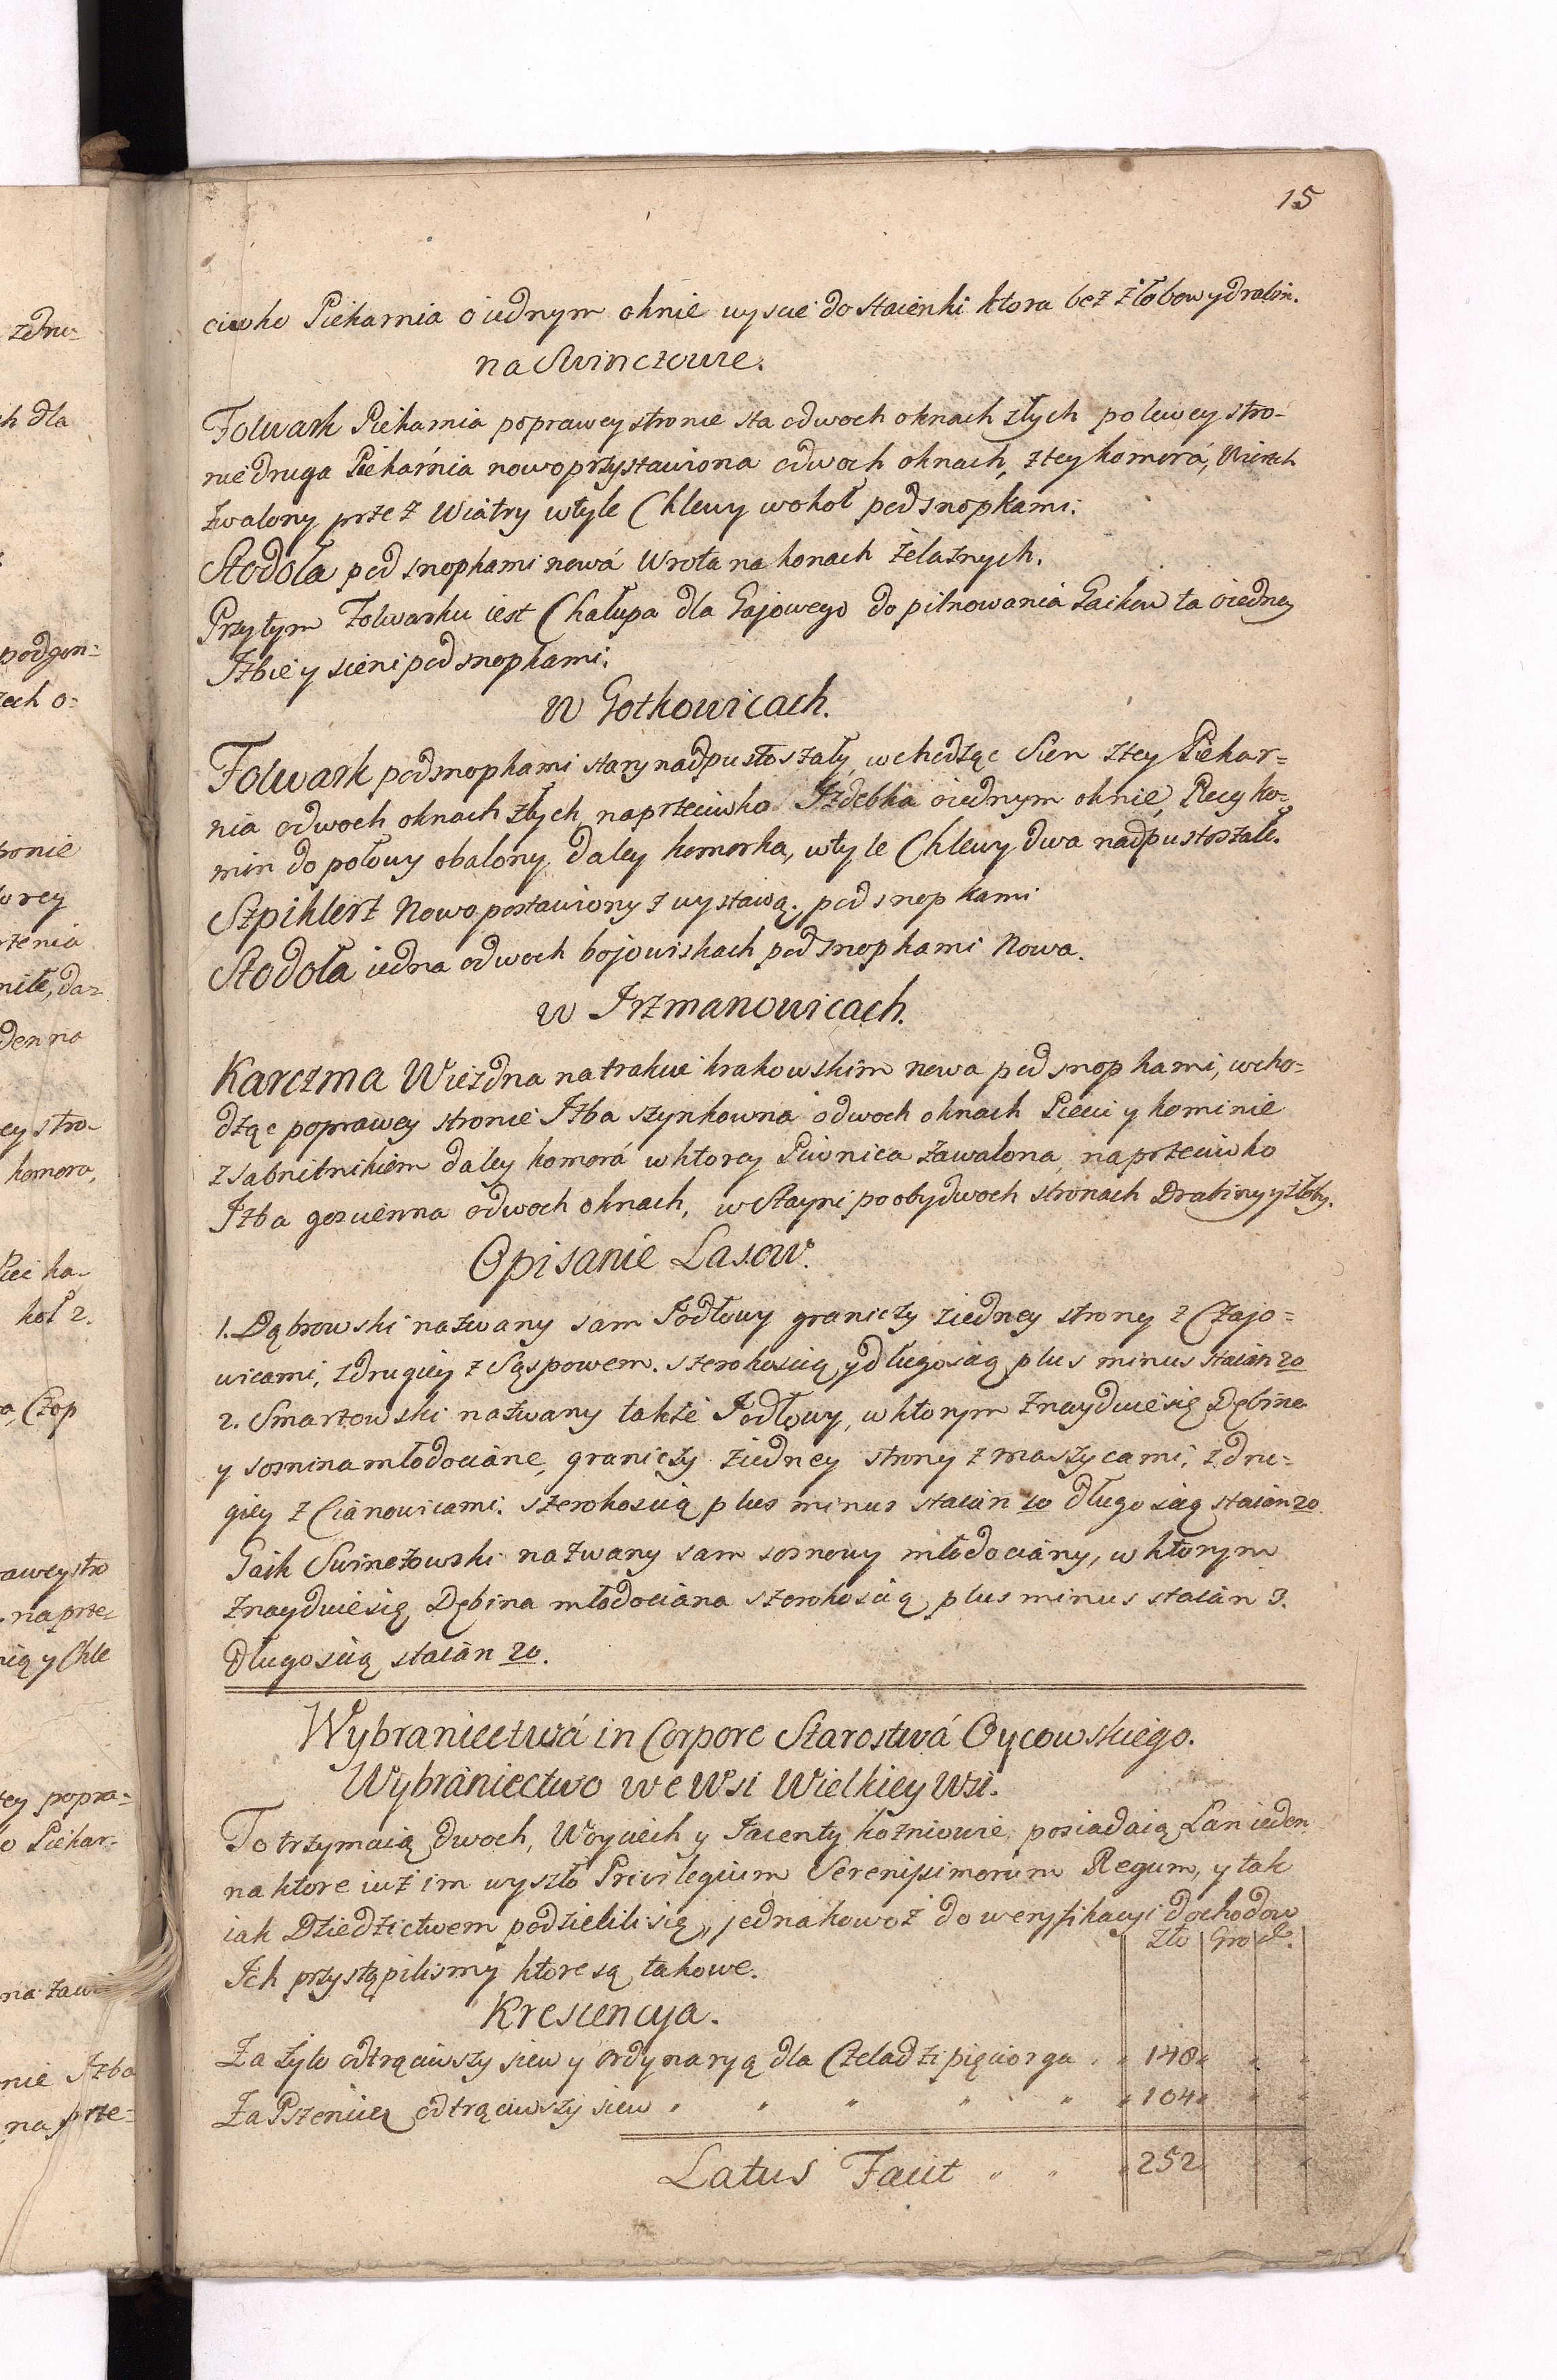 15
ciwko Piekarnia o iednym oknie wyscie do staienki ktora bez żłobow y drabin.
na Swinczowie.
Folwark Piekarnia po prawey stronie sta o dwoch oknach złych po lewey stro-
nie druga Piekarnia nowo przystawiona o dwoch oknach, z tey komorá, Wierzch
zwalony przez Wiatry w tyle Chlewy wokoł pod snopkami.
Stodoła pod snopkami nowá Wrota na konach żelaznych.
Przy tym Folwarku iest Chałupa dla Gajowego do pilnowania Gaikow ta o iedney
Izbie y sieni pod snopkami.
w Gotkowicach.
Folwark pod snopkami stary nadpustoszały, wchodząc Sien z tey Piekar=
nia o dwoch oknach złych, naprzeciwko Izdebka o iednym oknie, Piecy ko=
min do połowy obalony, daley komorka, w tyle Chlewy dwa nadpustoszałe.
Szpiklerz Nowo postawiony z wystawą, pod snopkami
Stodoła iedna o dwoch bojowiskach pod snopkami Nowa.
w Jrzmanowicach.
Karczma Wiezdna na trakcie krakowskim nowa pod snopkami, wcho=
dząc po prawey stronie Izba szynkowna o dwoch oknach Piecu y kominie
z sabnitnikiem daley komorá w ktorey Piwnica zawalona, naprzeciwko
Izba goscienna o dwoch oknach, w stayni po obydwoch stronach Drabiny y żłoby.
Opisanie Lasow.
1. Dąbrowski nazwany sam Jodłowy graniczy z iedney strony z Czajo=
wicami, z drugiey z Sąspowem. szerokoscią y długoscią plus minus staián 20
2. Smarzowski nazwany także Jodłowy, w ktorym znayduie się Dębina
y sosnina młodociáne, graniczy z iedney strony z Maszycami, z dru=
giey z Cianowicami. szerokoscią plus minus staián 10 długoscią staián 20.
Gaik Swinczowski nazwany sam sosnowy młodociány, w ktorym
znayduie się Dębina młodociána szerokoscią plus minus staián 3.
długoscią staián 20.
Wybraniectwá in Corpore Starostwá Oycowskiego.
Wybraniectwo we Wsi Wielkiey Wsi.
To trzymaią dwoch, Woyciech y Jacenty Koźniowie, posiadaią Łan ieden
na ktore iuż im wyszło Privilegium Serenissimorum Regum, y tak
iak Dziedzictwem podzielili się, jednakowoż do weryfikacyi dochodow
Ich przystąpilismy ktore są takowe.
Zło Gro
Krescencya.
Za żyto odtrąciwszy siew y ordynaryą dla Czeladzi pięciorga " " 148 " " "
Za Pszenicę odtrąciwszy siew " " " " " " 104 " " "
Latus Facit " " " 252 " "